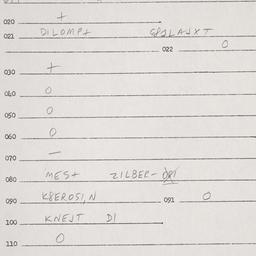 020 +
021 DILOMP+ GPSLAJXT
022 0
030 +
040 0
050 0
060 0
070 —
080 MES+ ZILBER-
090 KBEROSI,N 091 0
100 KNEJT DI
110 0